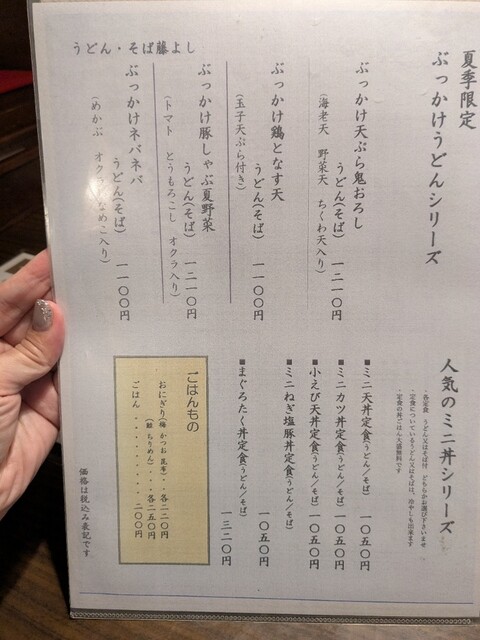 夏季限定
ぶっかけうどんシリーズ
ぶっかけ天ぷら鬼おろし
うどん(そば) 一二一〇円
(海老天 野菜天 ちくわ天入り)
ぶっかけ鶏となす天
うどん(そば) 一一〇〇円
(玉子天ぷら付き)
ぶっかけ豚しゃぶ夏野菜
うどん(そば) 一二一〇円
(トマト とうもろこし オクラ入り)
ぶっかけネバネバ
うどん(そば) 一一〇〇円
(めかぶ オクラ なめこ入り)
うどん・そば藤よし
人気のミニ丼シリーズ
・各定食 うどん又はそば付 どちらかお選び下さいませ
・定食についているうどん又はそばは、冷やしも出来ます
・定食の丼ごはん大盛無料です
■ミニ天丼定食(うどん/そば) 一〇五〇円
■ミニカツ丼定食(うどん/そば) 一〇五〇円
■小えび天丼定食(うどん/そば) 一〇五〇円
■ミニねぎ塩豚丼定食(うどん/そば)
一〇五〇円
■まぐろたく丼定食(うどん/そば)
一三二〇円
ごはんもの
おにぎり(梅 かつお 昆布)・・各二二〇円
(鮭 ちりめん)・・・各二五〇円
ごはん・・・・・・・・・二〇〇円
価格は税込み表記です